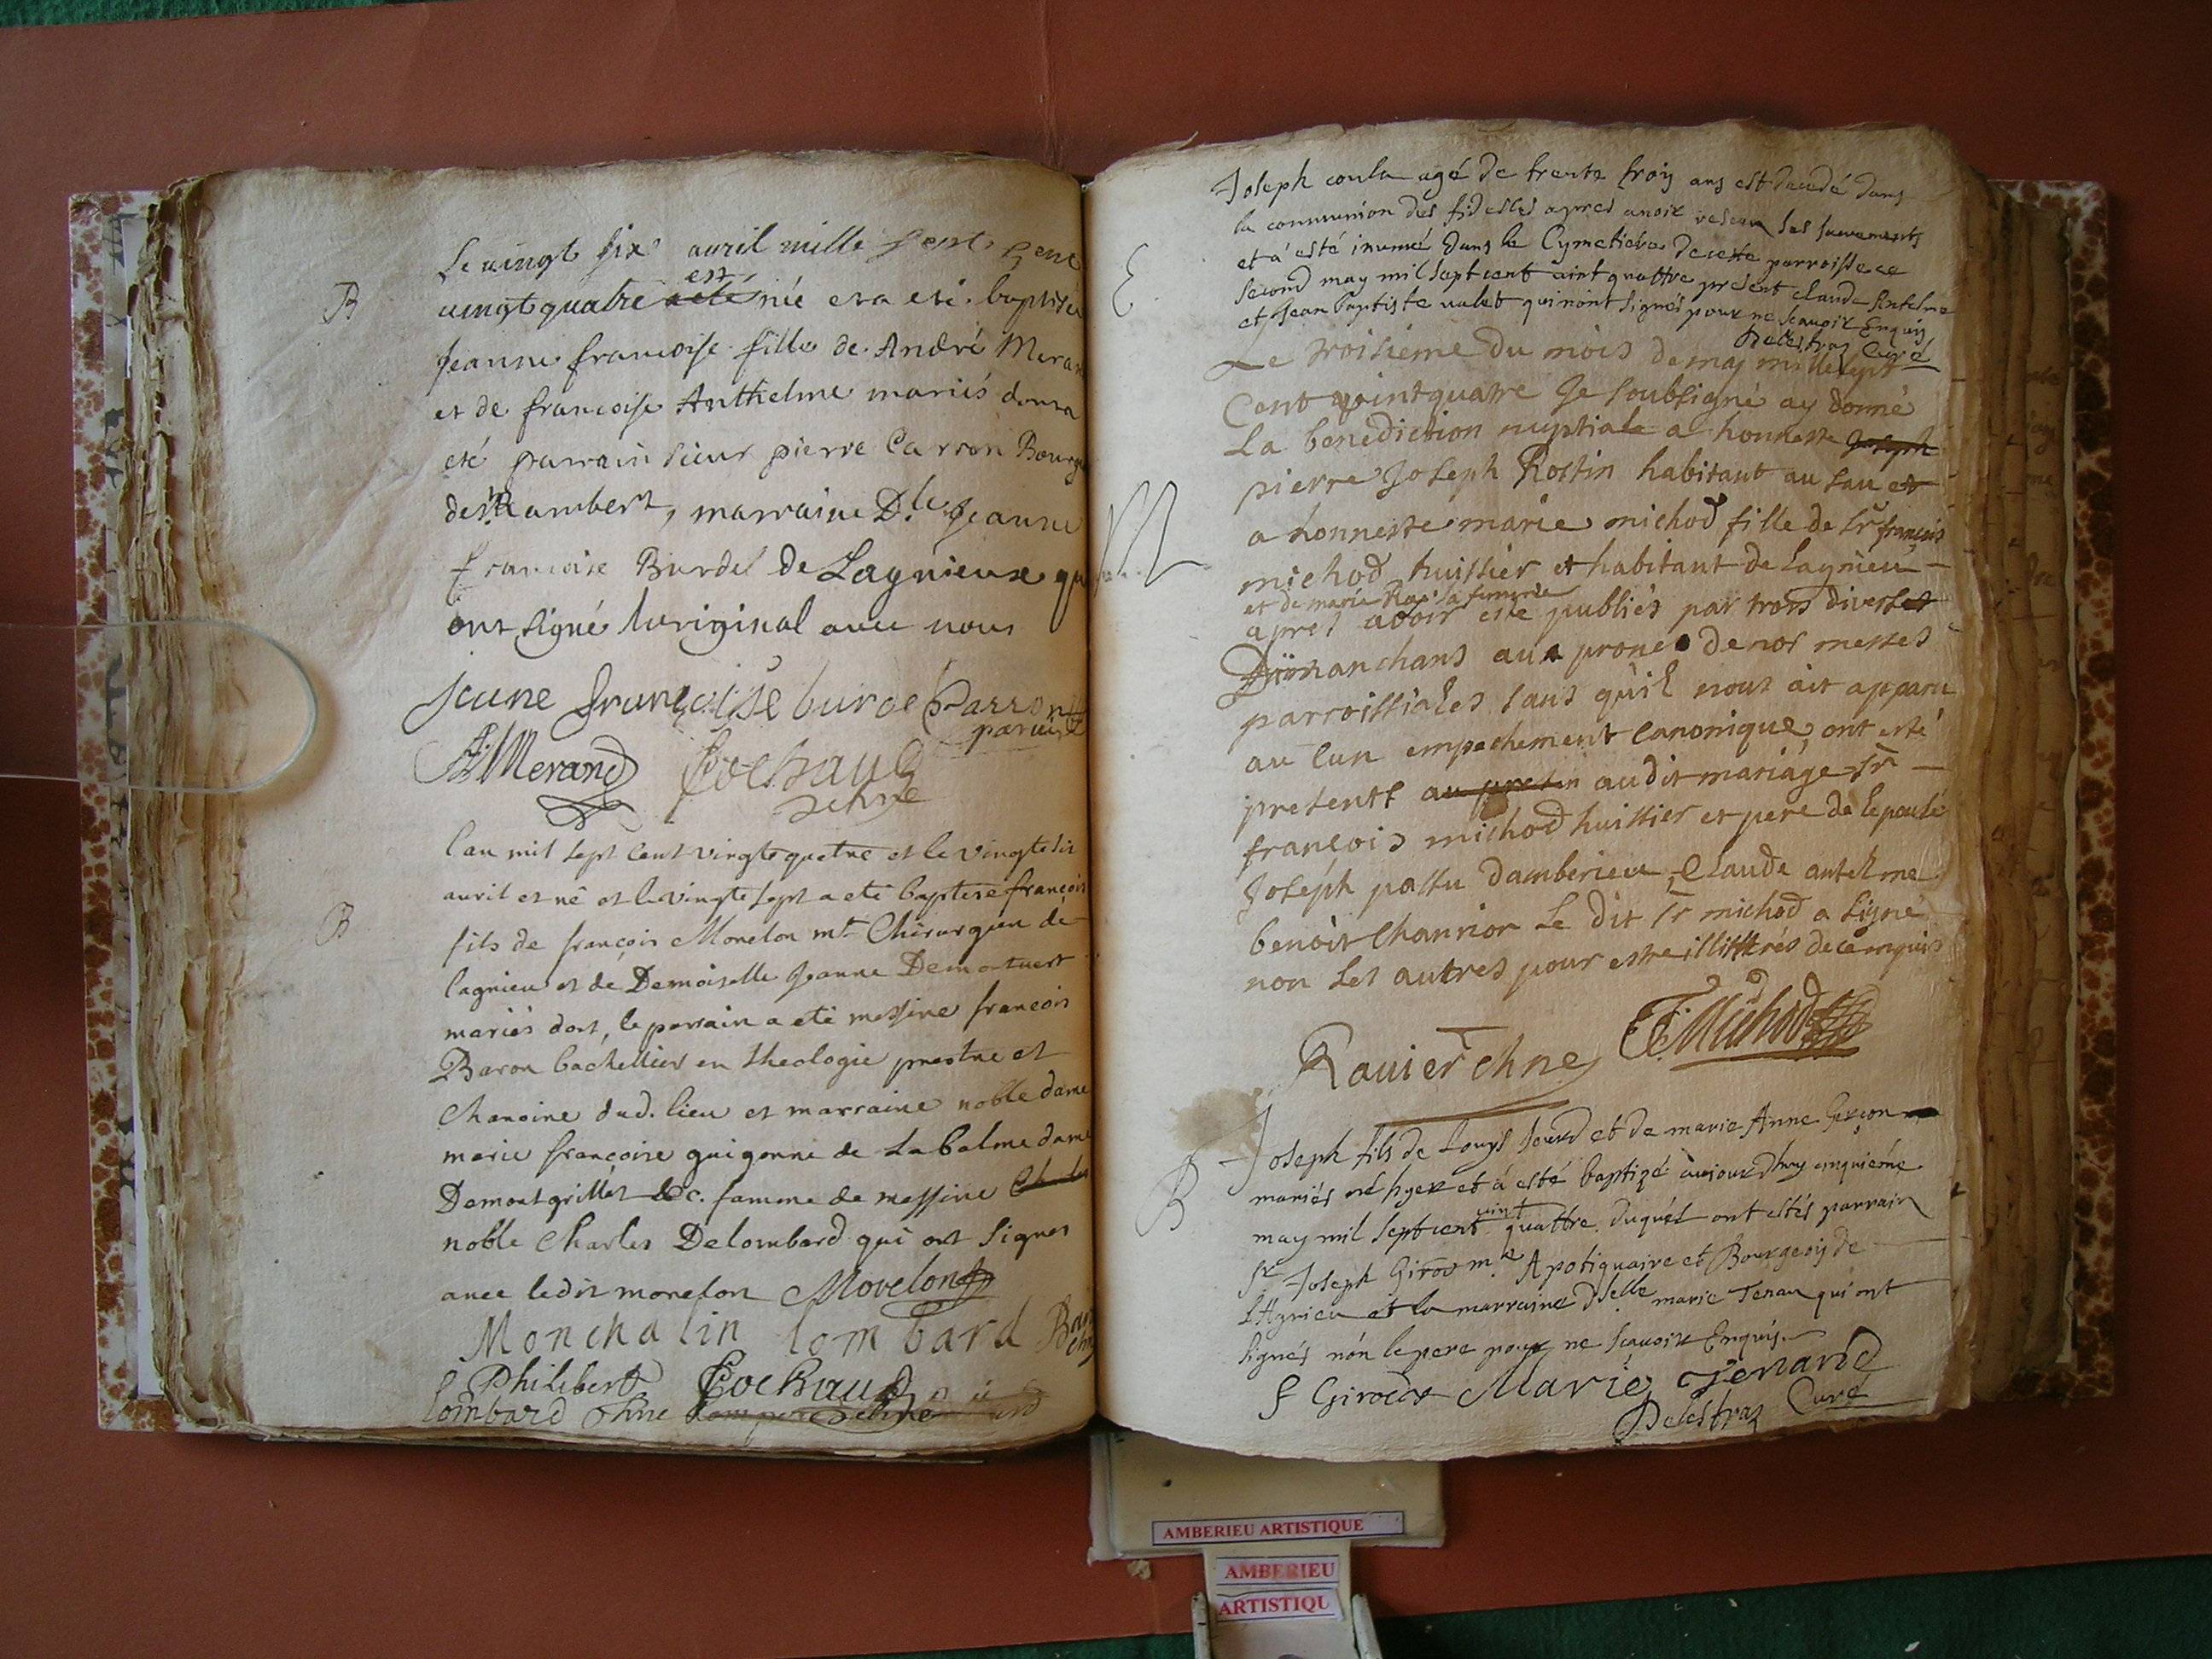 B
Le vingt six avril mille sept cent
est
vingt quatre a eté née et a eté baptisée
Jeanne francoise fille de André Meran
et de francoise Anthelme mariés dont a
eté parrain sieur pierre Carron Bourg
de st Rambert, marraine D.lle Jeanne
francoise Burdel de Lagnieux qu
ont signé luriginal avec nous
jeane françoise burdel Carron
parain
A Merand Cochaud
chne
B
lan mil sept cent vingte quatre et le vingte six
avril et né et le vingte sept a eté baptisé françois
fils de françois Monelon mt Chirurgien de
lagnieu et de Demoiselle Jeanne Demontuert
mariés dont le parrain a eté messire françois
Baron bachellier en theologie prestre et
Chanoine dud. lieu et marraine noble dame
marie françoise guigonne de La balme dame
Demontgrillet &c. famme de messire Charles
noble Charles Delombard qui ont signes
avec ledit monelon Movelon
Monchalin lombard Baron
chne
Philibert Cochaud
lombard chne chne
E
Joseph coula agé de trente troy ans est decedé dans
la communion des fidelles apres avoir reseu ses sacrements
et a esté inumé dans le Cymetiére de ceste parroisse ce
second may mil sept cent vint quattre present claude Antelme
et Jean baptiste valet qui nont signés pour ne scavoir Enquis
Delestraz Curé
M
Le troisieme du mois de may mille sept
Cent vint quatre Je soubsigné ay donné
La benediction nuptiale a honneste Joseph
pierre Joseph Rostin habitant au sau et
a honneste marie michod fille de sr françois
michod huissier et habitant de Lagnieu
et de marie Ray sa femme
apres avoir esté publiés par trois diverses
Dimanchans aux prones de nos messes
parroissiales sans quil nous ait apparu
aucun empechement canonique, ont esté
presents audit mariage sr
françois michod huissier et pere de lepousé
Joseph passu damberieu, Claude antelme
benoit Channion Le dit sr michod a signé
non les autres pour estre illittrés de ce enquis
Ravier chne F. Michod
B
Joseph fils de Louys Jourd et de marie Anne Gerçon
mariés né hyer et á esté baptizé aujourdhuy cinquiéme
vint
may mil sept cent quattre duquél ont estés parrain
sr Joseph Girod mre Apotiquaire et Bourgeois de
LAgnieu et la marraine Dlelle marie Tenan qui ont
signés nón le pere pour ne scavoir Enquis
J Girod Marie Tenand
Delestraz Curé
AMBERIEU ARTISTIQUE
AMBERIEU
ARTISTIQU